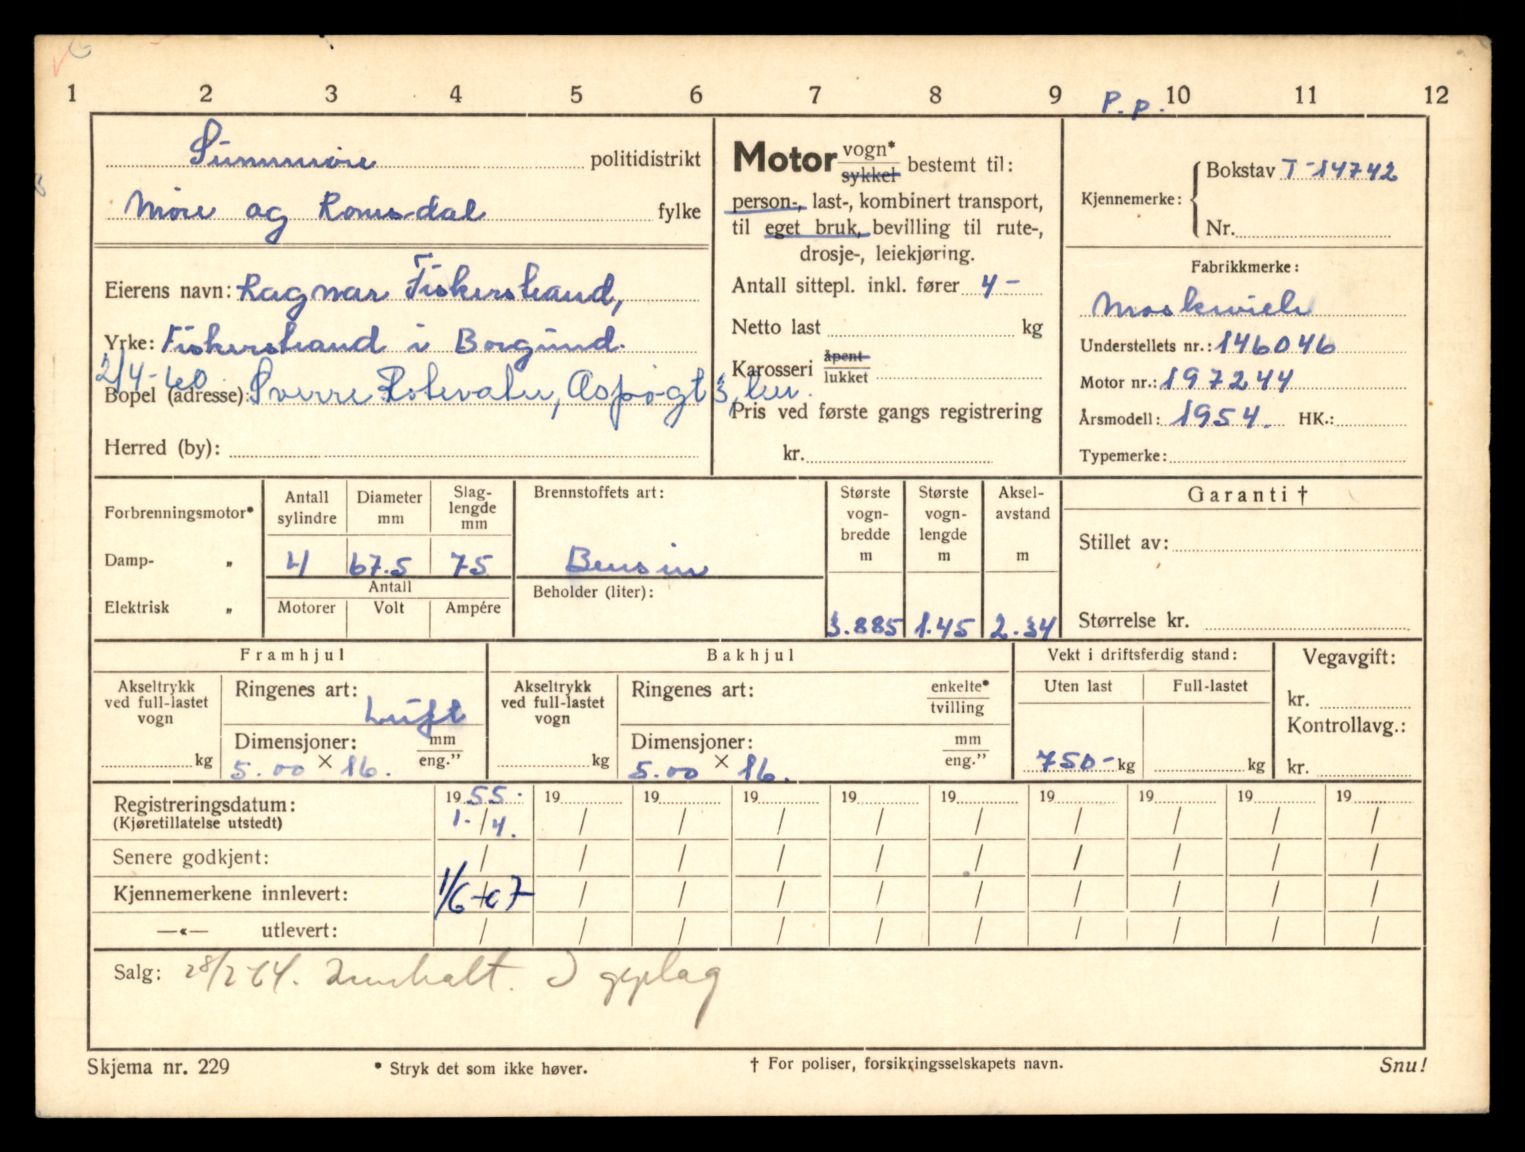 1 2 3 4 5 6 7 8 9 10 11 12
P.p.
Summøre politidistrikt
Møre og Romsdal fylke
Eierens navn: Ragnar Fiskerstrand,
Yrke: Fiskerstrand i Borgund.
2/4-60
Bopel (adresse): Sverre Rotevatn, Aspøgt 3,
Herred (by):
Motor vogn* sykkel bestemt til:
person-, last-, kombinert transport,
til eget bruk, bevilling til rute-,
drosje-, leiekjøring.
Antall sittepl. inkl. fører 4 -
Netto last kg
Karosseri åpent lukket
Pris ved første gangs registrering
kr.
Kjennemerke: Bokstav T-14742
Nr.
Fabrikkmerke:
Moskwich
Understellets nr.: 146046
Motor nr.: 197244
Årsmodell: 1954. HK.:
Typemerke:
Forbrenningsmotor*
Damp- „
Elektrisk „
Antall sylindre Diameter mm Slag-lengde mm
4 67.5 75
Antall
Motorer Volt Ampére
Brennstoffets art:
Bensin
Beholder (liter):
Største vogn-bredde m Største vogn-lengde m Aksel-avstand m
3.885 1.45 2.34
Garanti †
Stillet av:
Størrelse kr.
Framhjul
Akseltrykk ved full-lastet vogn kg
Ringenes art: Luft
Dimensjoner: mm eng."
5.00 × 16.
Bakhjul
Akseltrykk ved full-lastet vogn kg
Ringenes art: enkelte* tvilling
Dimensjoner: mm eng."
5.00 × 16.
Vekt i driftsferdig stand:
Uten last Full-lastet
750- kg kg
Vegavgift:
kr.
Kontrollavg.:
kr.
Registreringsdatum: 1955. 19 19 19 19 19 19 19 19 19
(Kjøretillatelse utstedt) 1./4. / / / / / / / / /
Senere godkjent: / / / / / / / / / /
Kjennemerkene innlevert: 1/6-67 / / / / / / / / /
—«— utlevert: / / / / / / / / / /
Salg: 28/2-64. Innkalt.
Skjema nr. 229 * Stryk det som ikke høver. † For poliser, forsikringsselskapets navn. Snu!